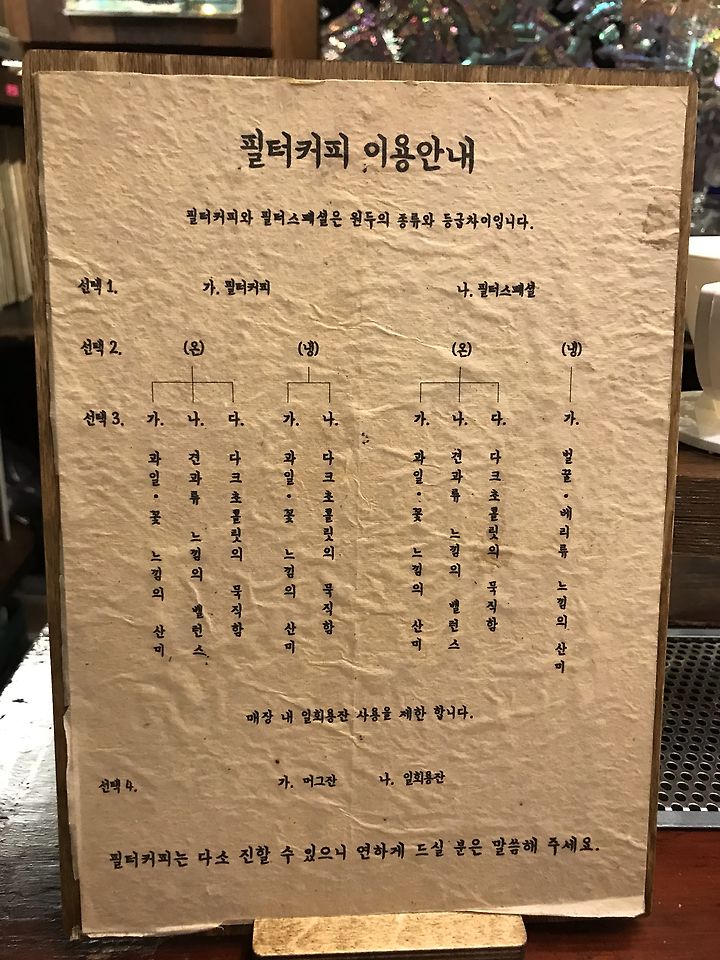 필터커피 이용안내
필터커피와 필터스페셜은 원두의 종류와 등급차이입니다.
선택 1. 가. 필터커피 나. 필터스페셜
선택 2. (온) (냉) (온) (냉)
선택 3. 가. 나. 다. 가. 나. 가. 나. 다. 가.
과일·꽃 느낌의 산미
견과류 느낌의 밸런스
다크초콜릿의 묵직함
과일·꽃 느낌의 산미
다크초콜릿의 묵직함
과일·꽃 느낌의 산미
견과류 느낌의 밸런스
다크초콜릿의 묵직함
벌꿀·베리류 느낌의 산미
매장 내 일회용잔 사용을 제한 합니다.
선택 4. 가. 머그잔 나. 일회용잔
필터커피는 다소 진할 수 있으니 연하게 드실 분은 말씀해 주세요.